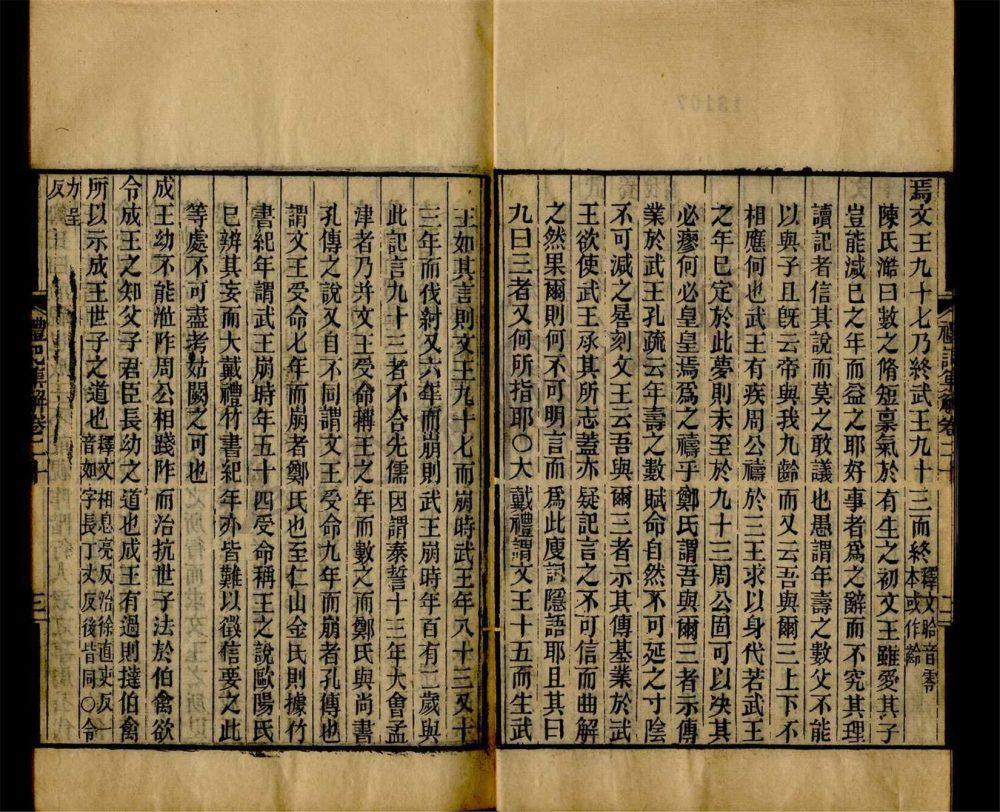 焉文王九十七乃終武王九十三而終釋文聆音零本或作齡
陳氏澔曰數之脩短稟氣於有生之初文王雖愛其子
豈能減已之年而益之耶好事者爲之辭而不究其理
讀記者信其說而莫之敢議也愚謂年壽之數父不能
以與子且旣云帝與我九齡而又云吾與爾三上下不
相應何也武王有疾周公禱於三王求以身代若武王
之年已定於此夢則未至於九十三周公固可以决其
必瘳何必皇皇焉爲之禱乎鄭氏謂吾與爾三者示傳
業於武王孔疏云年壽之數賦命自然不可延之寸陰
不可減之晷刻文王云吾與爾三者示其傳基業於武
王欲使武王承其所志蓋亦疑記言之不可信而曲解
之然果爾則何不可明言而爲此廋詞隱語耶且其曰
九曰三者又何所指耶○大戴禮謂文王十五而生武
王如其言則文王九十七而崩時武王年八十三又十
三年而伐紂又六年而崩則武王崩時年百有二歲與
此記言九十三者不合先儒因謂泰誓十三年大會孟
津者乃并文王受命稱王之年而數之而鄭氏與尚書
孔傳之說又自不同謂文王受命九年而崩者孔傳也
謂文王受命七年而崩者鄭氏也至仁山金氏則據竹
書紀年謂武王崩時年五十四受命稱王之說歐陽氏
已辨其妄而大戴禮竹書紀年亦皆難以徵信要之此
等處不可盡考姑闕之可也
成王幼不能涖阼周公相踐阼而治抗世子法於伯禽欲
令成王之知父子君臣長幼之道也成王有過則撻伯禽
所以示成王世子之道也釋文相息亮反治徐直吏反一音如字長丁丈反後皆同○令
力呈反
禮記集解卷二十
二
禮記集解卷二十
三
13107